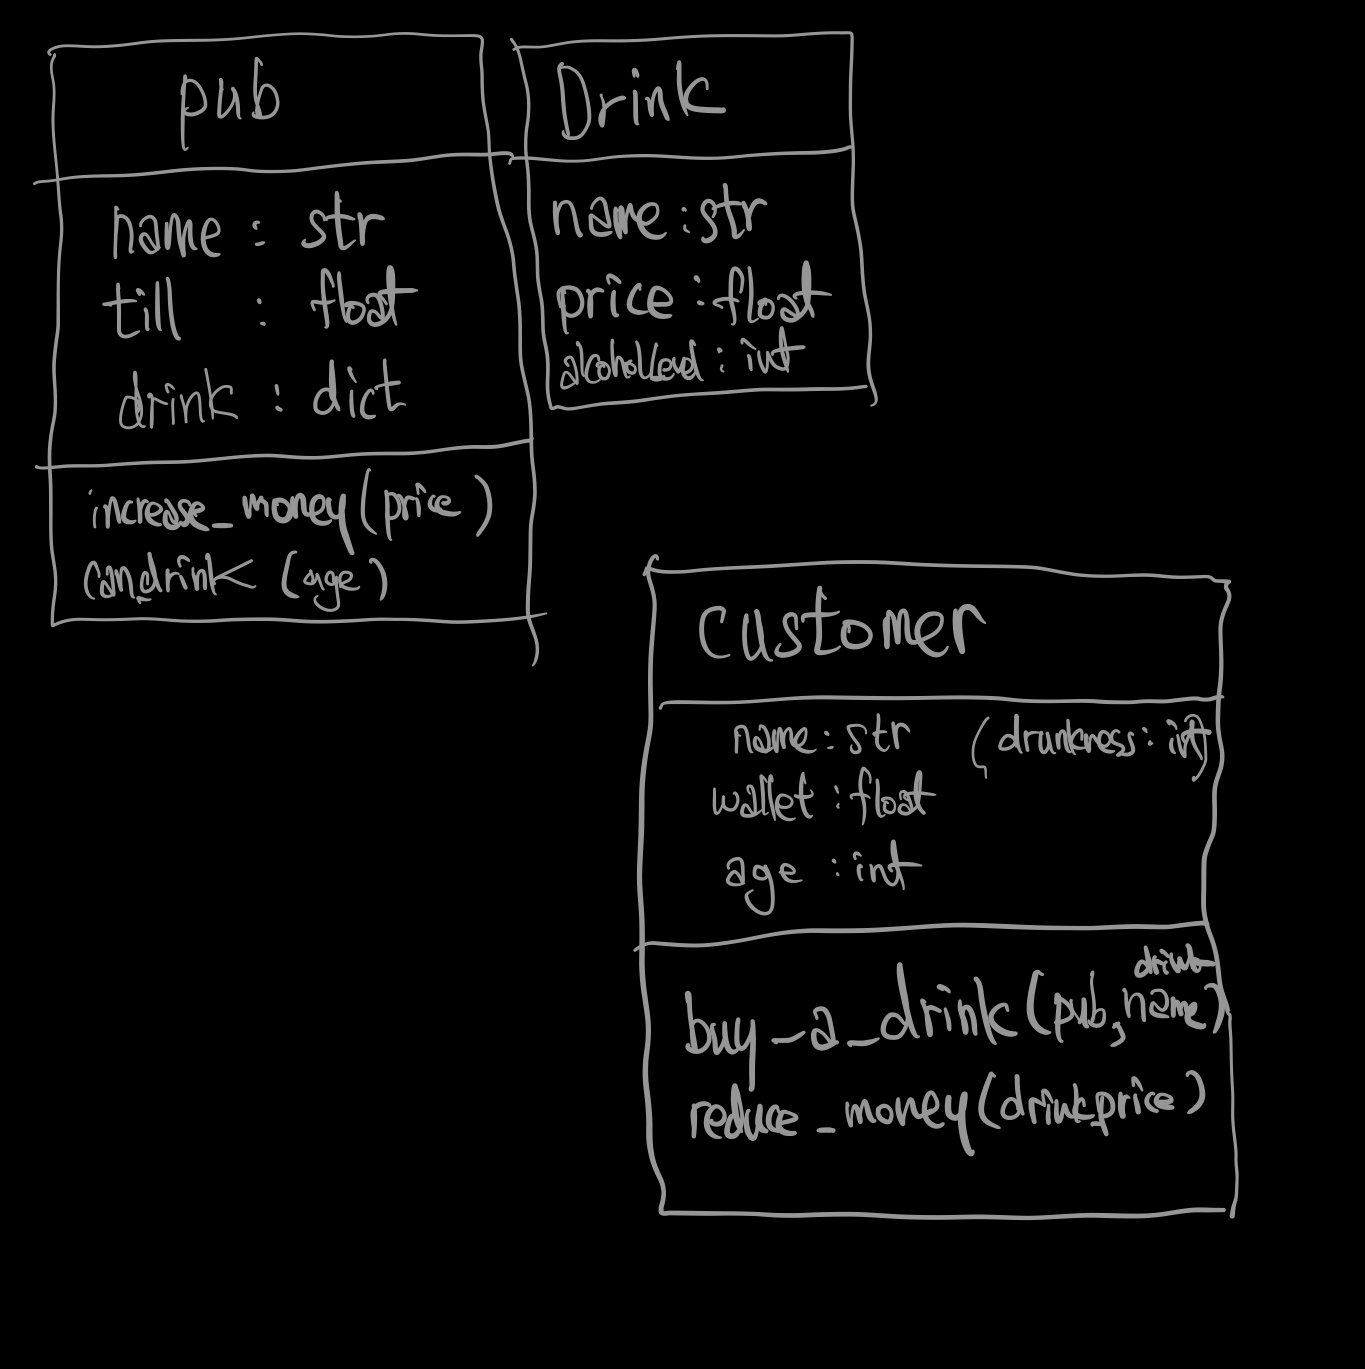 pub
name : str
till : float
drink : dict
increase_money(price)
can_drink (age)
Drink
name : str
price : float
alcohol_level : int
customer
name : str (drunkness : int)
wallet : float
age : int
drink
buy_a_drink(pub, name)
reduce_money(drink_price)